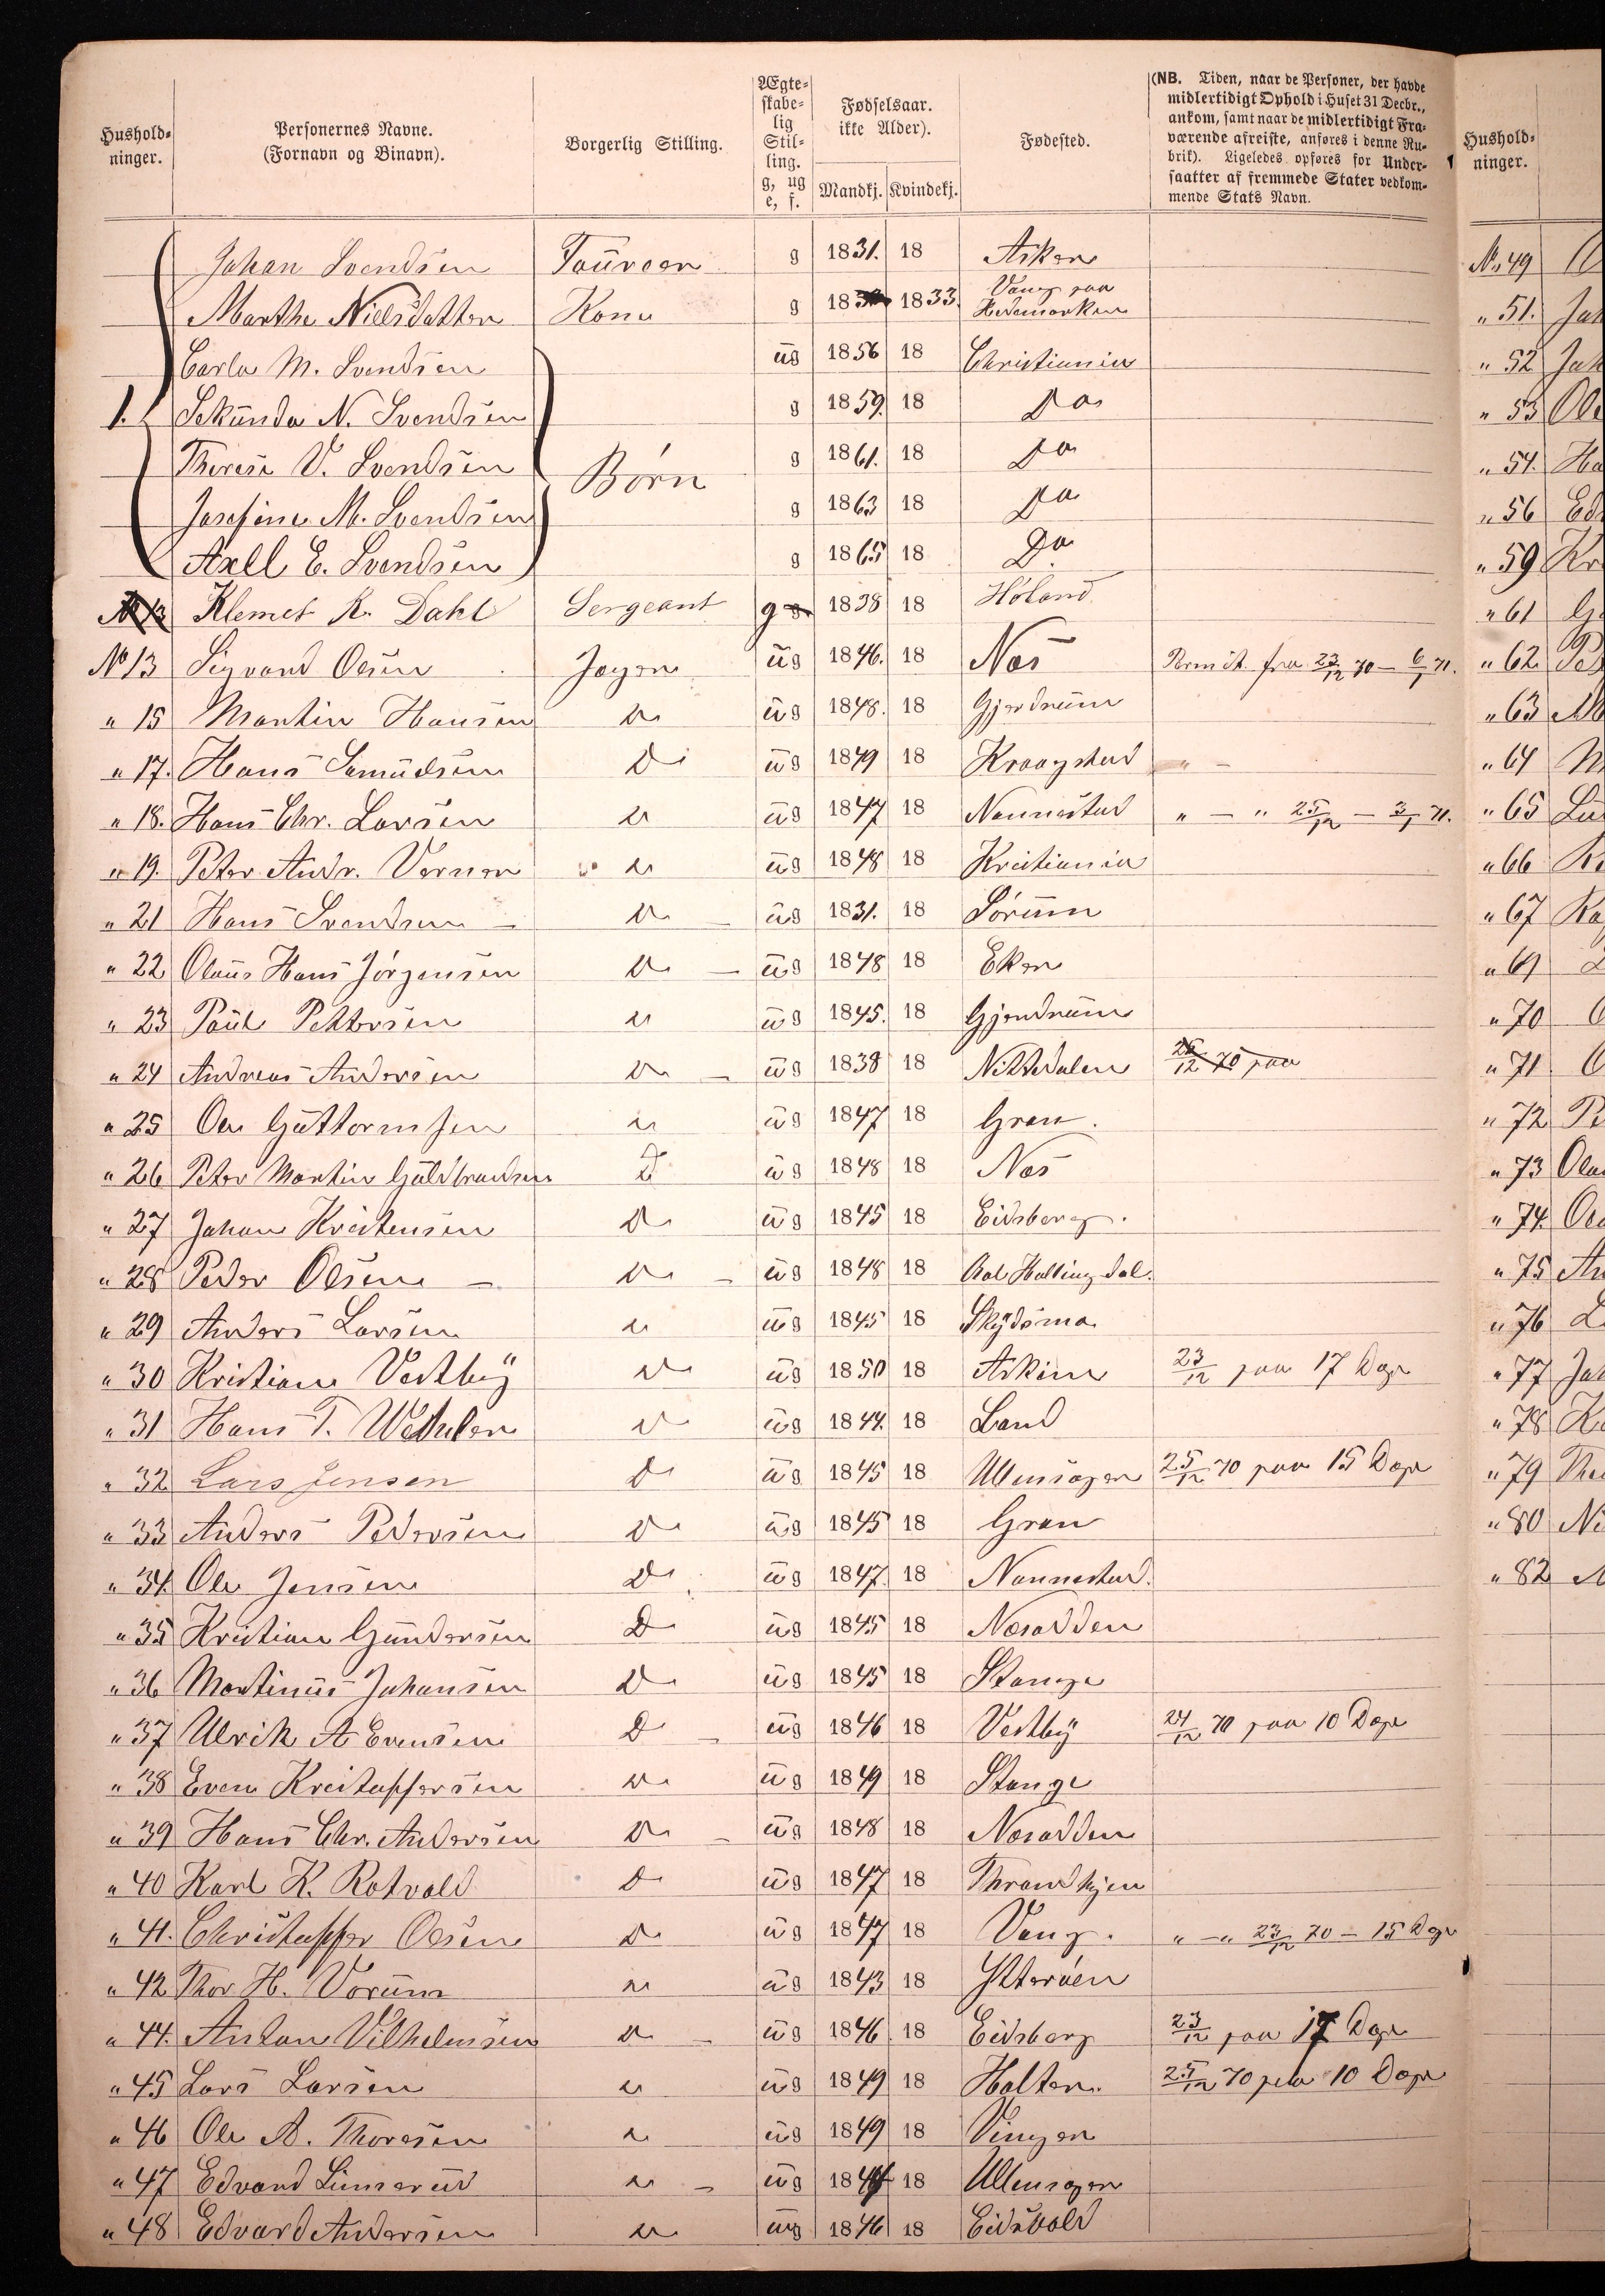 Hushold-
ninger.
Personernes Navne.
(Fornavn og Binavn).
Borgerlig Stilling.
Ægte-
skabe-
lig
Stil-
ling.
g, ug
e, f.
Fødselsaar.
ikke Alder).
Mandkj. Kvindekj.
Fødested.
(NB. Tiden, naar de Personer, der havde
midlertidigt Ophold i Huset 31 Decbr.,
ankom, samt naar de midlertidigt Fra-
værende afreiste, anføres i denne Ru-
brik). Ligeledes opføres for Under-
saatter af fremmede Stater vedkom-
mende Stats Navn.
Hushold-
ninger.
Johan Svendsen g 1831. 18 Asker
Marthe Nielsdatter Kone g 18 1833. Vang paa Hedemarken
Carla M. Svendsen ug 1856 18 Christiania
1. Sekunda N. Svendsen g 1859. 18 Do
Therese V. Svendsen Børn g 1861. 18 Do
Josefine M. Svendsen g 1863 18 Do
Axell E. Svendsen g 1865 18 Do
Klemet K. Dahl Sergeant g 1838 18 Høland
No 13 Sigvard Olsen Jæger ug 1846. 18 Næs Permit. fra 23/12 70 – 6/1 71.
" 15 Martin Hansen D ug 1848. 18 Gjerdrum
" 17. Hans Samuelsen D ug 1849 18 Kraagstad " -
" 18. Hans Chr. Larsen D ug 1847 18 Nannestad " – " 25/12 – 3/1 71.
" 19. Peter Andr. Verner D ug 1848 18 Kristiania
" 21 Hans Svendsen – D – ug 1831. 18 Sørum
" 22 Olaus Hans Jørgensen D – ug 1848 18 Eker
" 23 Paul Pettersen D ug 1845. 18 Gjerdrum
" 24 Andreas Andersen D – ug 1838 18 Nittedalen 26/12 70 paa
" 25 Ole Guttormsen D ug 1847 18 Gran.
" 26 Peter Martin Guldbrandsen D ug 1848 18 Næs
" 27 Johan Kristensen D ug 1845 18 Eidsberg.
" 28 Peder Olsen – D – ug 1848 18 Aal Hallingdal.
" 29 Anders Larsen D ug 1845 18 Skydsmo
" 30 Kristian Vestby D ug 1850 18 Askim 23/12 paa 17 Dage
" 31 Hans T. D ug 1844. 18 Land
" 32 Lars Jensen D ug 1845 18 Ullensager 25/12 70 paa 15 Dage
" 33 Anders Pedersen D ug 1845 18 Gran
" 34. Ole Jensen D ug 1847. 18 Nannestad.
" 35 Kristian Gundersen D ug 1845 18 Næsodden
" 36 Martinus Johansen D ug 1845 18 Stange
" 37 Ulrik A Evensen D – ug 1846 18 Vestby 24/12 70 paa 10 Dage
" 38 Even Kristoffersen D ug 1849 18 Stange
" 39 Hans Chr. Andersen D – ug 1848 18 Næsodden
" 40 Karl K. Rotvold D ug 1847 18 Throndhjem
" 41. Christoffer Olsen D ug 1847 18 Vang. " – " 23/12 70 – 15 Dage
" 42 Thor H. Vorum D ug 1843 18 Ytterøen
" 44. Anton Vilhelmsen D – ug 1846. 18 Eidsberg 23/12 paa 17 Dage
" 45 Lars Larsen D ug 1849 18 Holter. 25/12 70 paa 10 Dage
" 46 Ole A. Thoresen D ug 1849 18 Vinger
" 47 Edvard D – ug 184 18 Ullensager
" 48 Edvard Andersen D ug 1846 18 Eidsvold
No 49
" 51. Joh
" 52 Joh
" 53 Ole
" 54. Ha
" 56 Ed
" 59 Kr
" 61 G
" 62 Pe
" 63 M
" 64 M
" 65 Lu
" 66 K
" 67 Ka
" 69
" 70
" 71
" 72 P
" 73 Ola
" 74. Ole
" 75 An
" 76 L
" 77 Joh
" 78 K
" 79 The
" 80 Ni
" 82